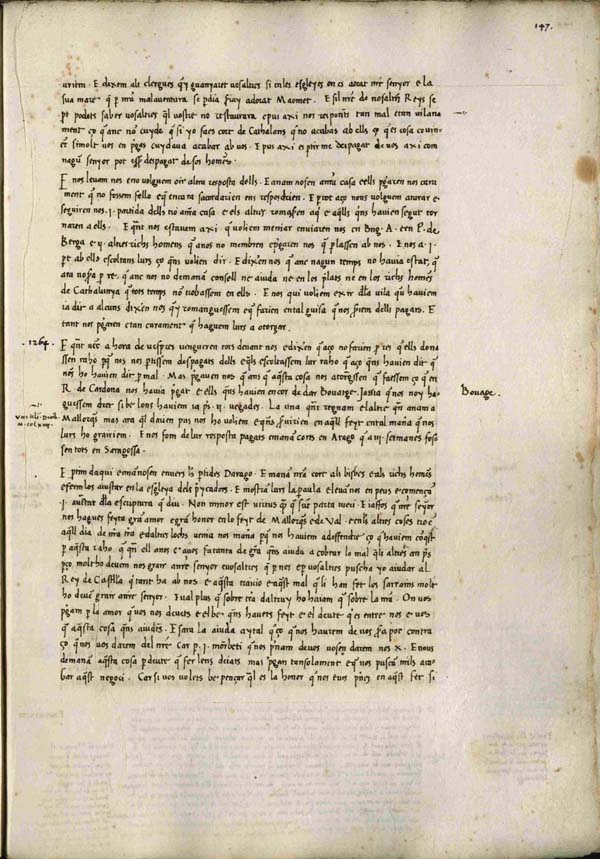 147.
uriem. E dixem als clergues q̄ y guanyaret vosaltres si en les esgleyes on es aorat nr̄e senyor e la
sua mare q̄ p mr̄a malaventura se pdia fiay adorat Maomet. E sil nr̄e de nosaltres Reys se
pt podets saber vosaltres q̄ l vostre no restauraria epus axi nos responets tan mal e tan vilana
ment ço q̄ anc no cuyde q̄ si yo faes cort de Cathalans q̄ no acabas ab ells q̄ es cosa covin
et simolt vos en pgas cuydava acabar ab vos. E pus axi es ptirme despagat de vos axi com
negu senyor pot esser despagat de sos homes.
E nos levam nos e no volguem oir altra resposta dells. E anam nosen a nr̄a casa e ells pgaren nos cara
ment q̄ no fossem fello e q̄ encara sacordarien e ns respondrien. E p tot aço nons volguem aturar e
seguiren nos .j. partida dells tro a nr̄a cusa e els altres romasen aqi e aqlls q̄ ns havien seguit tor
naren a ells. E q̄nt nos estavem axi q̄ voliem meniar enviaren nos en Bng. A. e en P. de
Berga e .ij. altres richs homens q̄ a nos no membren e pgaren nos q̄ plassen ab nos. E nos a .j.
pt ab ells escoltam lurs ço q̄ns volien dir. E dixeren nos q̄ anc nagun temps no havia estat q̄
ara nosfia p re. q̄ anc nos no demana consell ne aiuda ne en los plats ne en los richs homes
de Cathalunya q̄ tots temps no trobassem en ells. E nos qui voliem exir dla vila q̄ u haviem
ia dit a alcuns dixeren nos q̄ y romanguessem e q̄ farien en tal guisa q̄ nos friem dells pagats. E
tant nos pgaren e tan carament q̄ haguem lurs a otorgar.
. 1264.
E q̄nt vec a hora de vespres vengueren tots denant nos e dixeren q̄ aço no farien p res q̄ ells dona
ssen raho pq̄ nos nos ptissem despagats dells e q̄ls escoltassem lur raho q̄ aço q̄ns havien dit q̄
nos ho havien dit p mal. Mas pgaven nos q̄ ans q̄ aqsta cosa nos atorgassen q̄ faessem ço q̄ en
R. de Cardona nos havia pgat e ells q̄ns havien encor de dar Bovatge. Jassia q̄ nos noy ha
Bovage.
guessem dret si be lons haviem ia ps .ij. vegades. La una q̄nt regnam e laltre q̄n anam a
Mallorq̄s mas ara q̄ l darien pus nos ho voliem e q̄ns servirien en aqll feyt en tal mana q̄ nos
lurs ho grairiem. E nos fom de lur resposta pagats e mana corts en Arago q̄ a .iij. setmanes fosse
sen tots en Saragossa.
E ptim daqui e anam nosen envers les ptides Darago. E manam nr̄a cort als bisbes e als richs homes
e fem los aiustar en la esgleya dels pycadors. E mostra lurs la paula e levam nos en peus e comença
.j. auctat dla escriptura q̄ diu. Non minor est virtus q̄ q̄ sut parta tueri. E iassfos q̄ nr̄e senyor
nos hagues feyta gra amor e gra honor en lo feyt de Mallorq̄s e de Val. e en les altres coses tro e
aqll dia de nr̄a tra e daltres lochs
p aqsta raho q̄ q̄n ell a nos e a vos fa tanta de gra q̄ns aiuda a cobrar lo mal q̄ls altres an ps
pço molt ho devem nos grair a nr̄e senyor e vosaltres q̄ p nos e p vosaltres puscha yo aiudar al
Rey de Castella q̄ tant ha ab nos e aqsta traicio e aqst mal q̄ li han fet los sarrains molt
ho deve grair a nr̄e senyor. E ual plus q̄ sobre tra daltruy ho haiam q̄ sobre la nr̄a. On vos
pgam p la amor q̄ vos nos devets e el be q̄ns havets feyt e el deute q̄ es entre nos e vos
q̄ aqsta cosa q̄ns aiudets. E sara la aiuda aytal q̄ ço q̄ nos haurem de vos sra por contra
ço q̄ nos vos darem del nr̄e. Car p .j. morbeti q̄ nos prenam de vos vosen darem nos x. E nous
demana aqsta cosa p deute q̄ fer lens deiats mas pgam tansolament e q̄ nos puscam mils aca
bar aqst negoci. Car si vos volets be pençar q̄l es la honor q̄ nos e vos pnem en aqst fet si